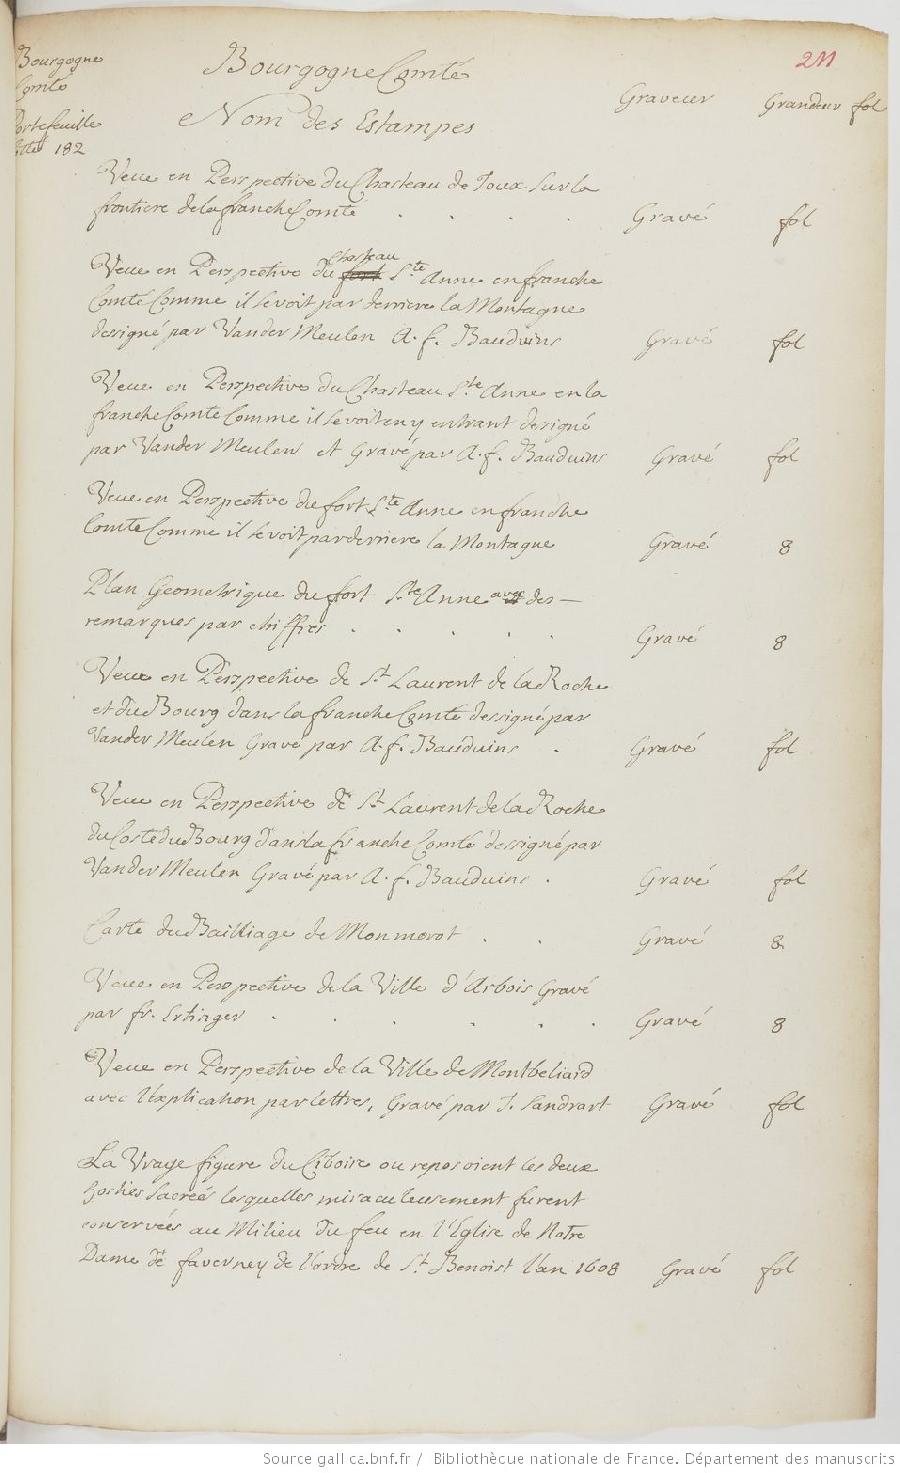 Bourgogne
Comté
Portefeuille
182
Bourgogne Comté
211
Nom des Estampes
Graveur
Grandeur fol
Veue en Perspective du Chasteau de Joux sur la
frontiere de la franche Comté . . . . Gravé fol
Veue en Perspective du fort Chasteau Ste Anne en franche
Comté Comme il se voit par derriere la Montagne
designé par Vander Meulen A. f. Bauduins Gravé fol
Veue en Perspective du Chasteau Ste Anne en la
franche Comté Comme il se voit en y entrant designé
par Vander Meulen et Gravé par A. f. Bauduins Gravé fol
Veue en Perspective du fort Ste Anne en franche
Comté Comme il se voit par derriere la Montagne Gravé 8
Plan Geometrique du fort Ste Anne avec des
remarques par chiffres . . . . . Gravé 8
Veue en Perspective de St Laurent de la Roche
et du Bourg dans la franche Comté dessigné par
Vander Meulen Gravé par A. f. Bauduins . Gravé fol
Veue en Perspective de St Laurent de la Roche
du Costé du Bourg dans la franche Comté dessigné par
Vander Meulen Gravé par A. f. Bauduins . Gravé fol
Carte du Bailliage de Monmorot . . Gravé 8
Veue en Perspective de la Ville d'Arbois Gravé
par fr. Ertinger . . . . . . Gravé 8
Veue en Perspective de la Ville de Montbeliard
avec l'explication par lettres, Gravé par J. Sandrart Gravé fol
La Vraye figure du Ciboire ou reposoient les deux
hosties sacreés lesquelles miraculeusement furent
conserveés au Milieu du feu en l'Eglise de Notre
Dame de faverney de l'ordre de St Benoist l'an 1608 Gravé fol
Source gallica.bnf.fr / Bibliothèque nationale de France. Département des manuscrits